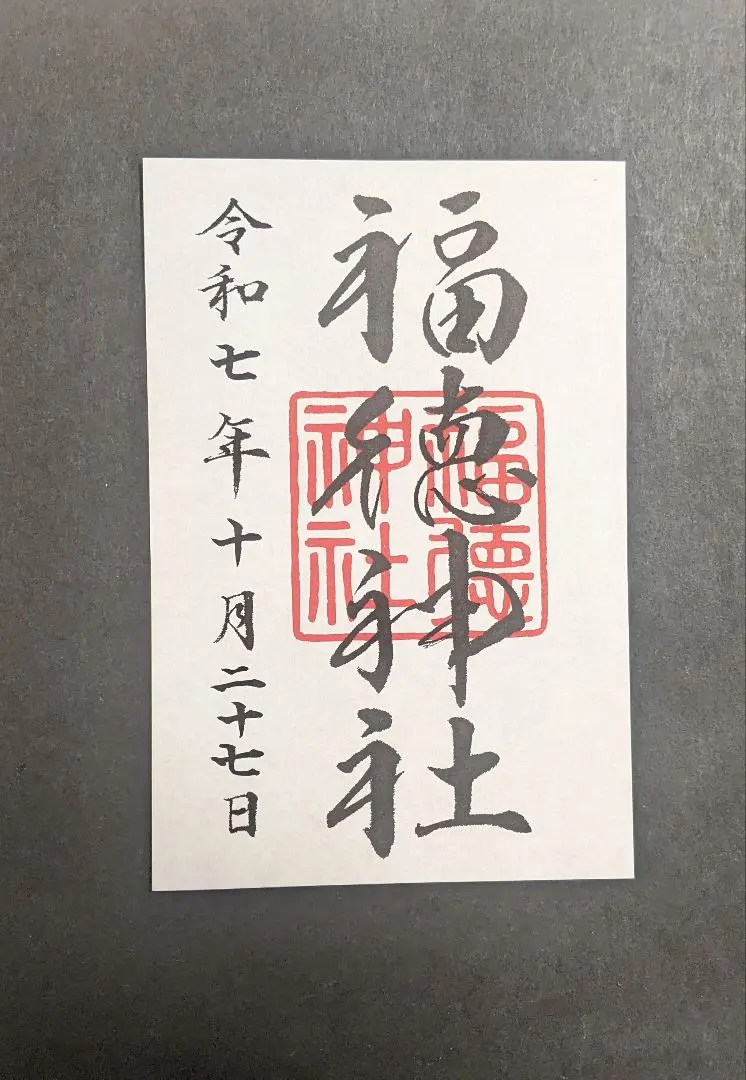 福徳神社
福徳神社
令和七年十月二十七日